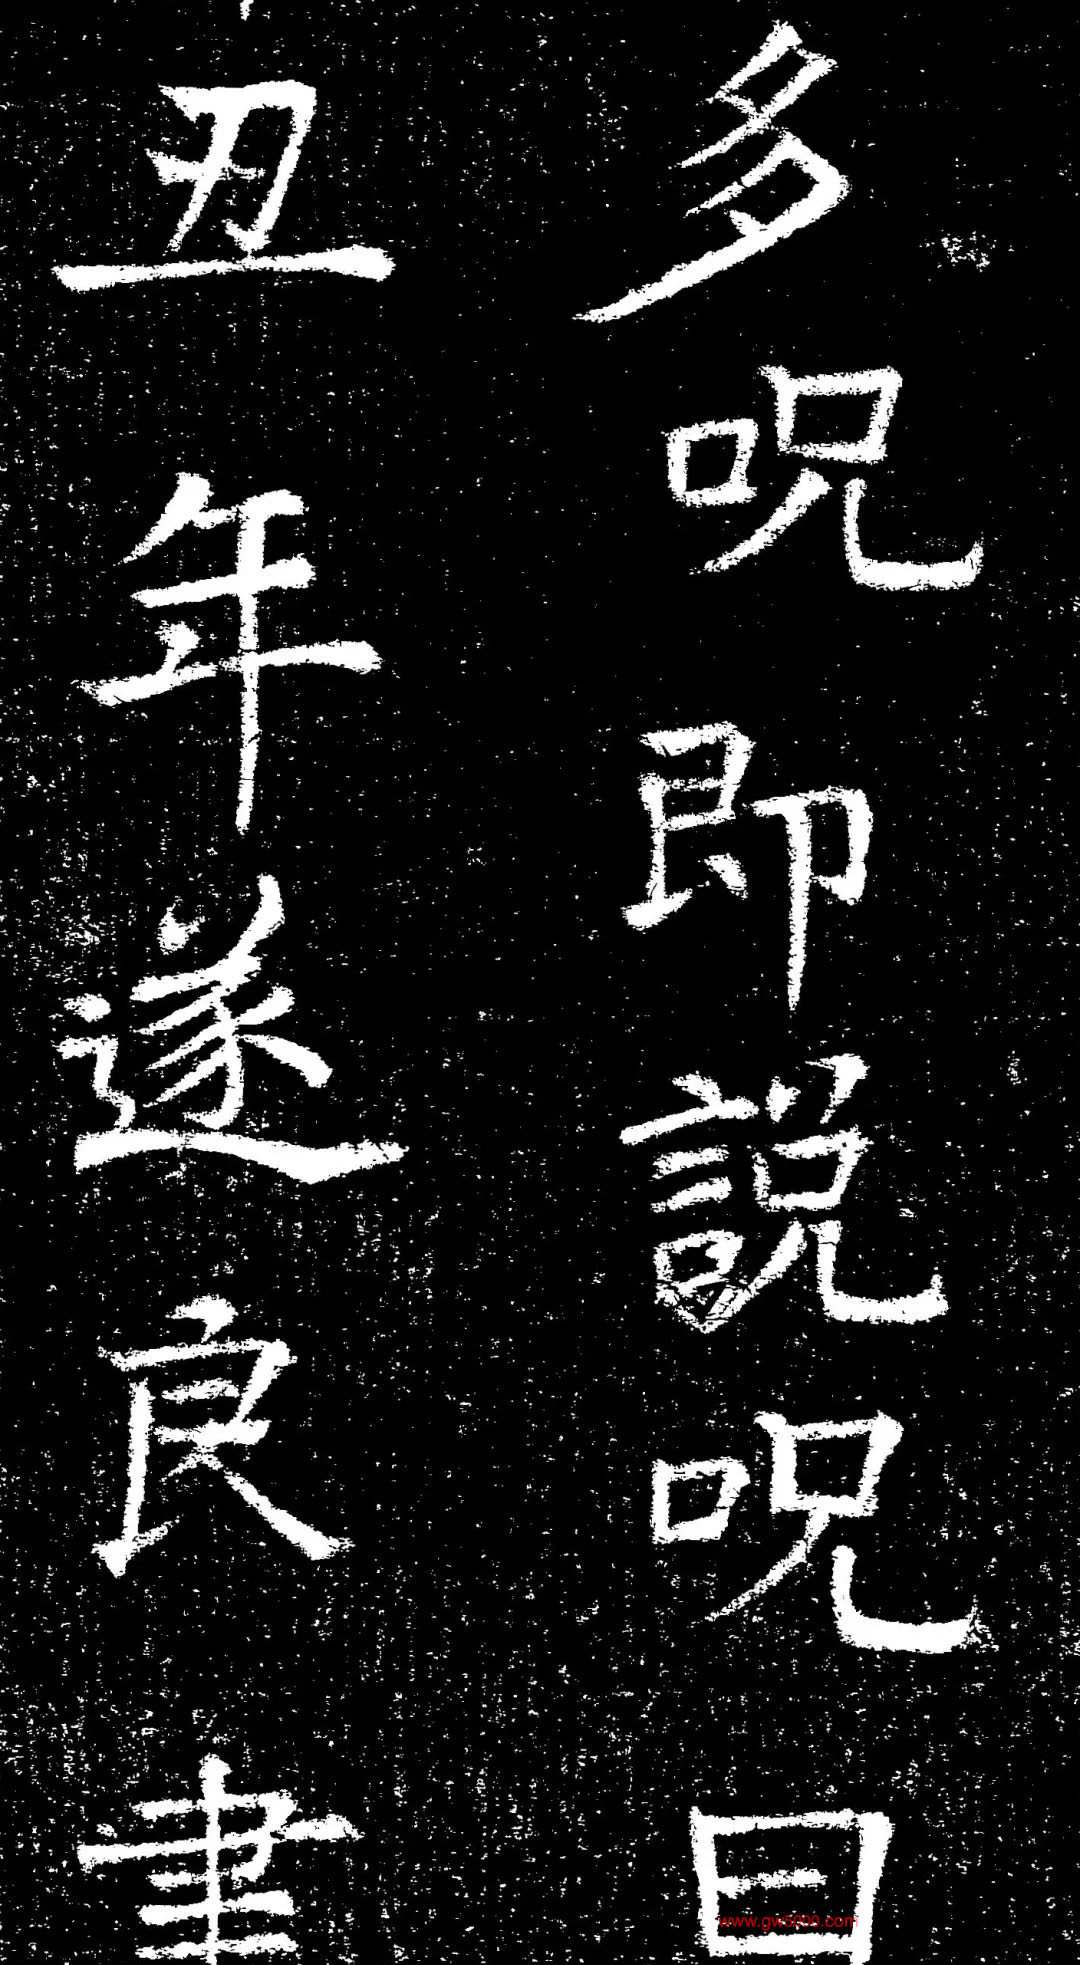 多呪即說呪曰
丑年遂良書
www.gw5000.com